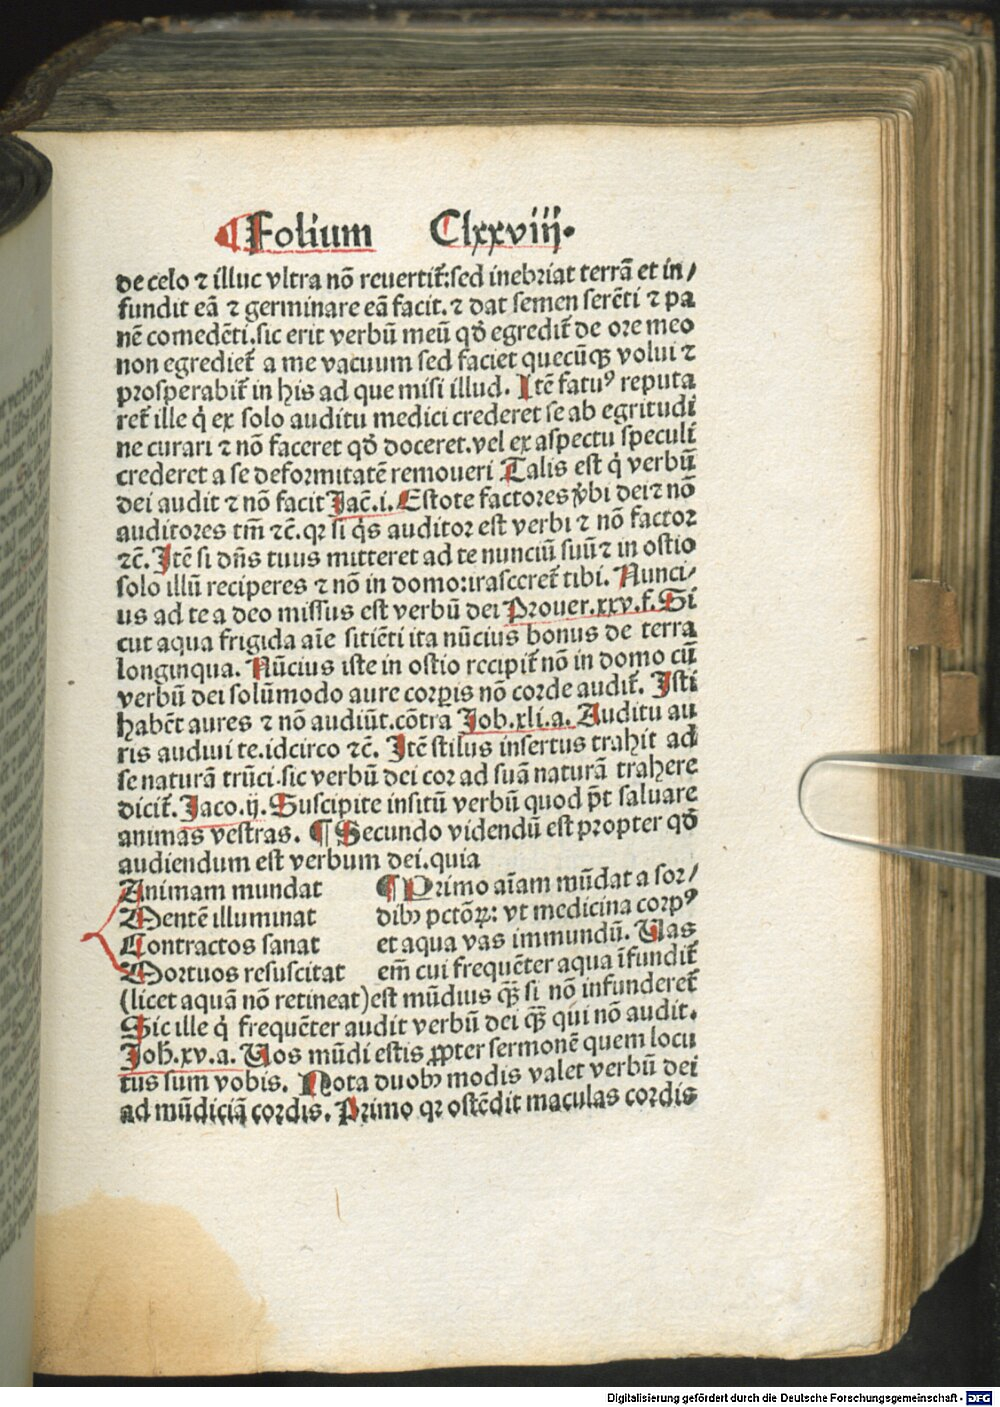 ¶ Folium Clxxviij.
de celo ⁊ illuc vltra nō reuertit̄:sed inebriat terrā et in/
fundit eā ⁊ germinare eā facit. ⁊ dat semen serēti ⁊ pa
nē comedēti.sic erit verbū meū qđ egredit̄ de ore meo
non egrediet̄ a me vacuum sed faciet quecūqꝫ volui ⁊
prosperabit̄ in his ad que misi illud. Itē fatuꝰ reputa
ret̄ ille q̇ ex solo auditu medici crederet se ab egritudi
ne curari ⁊ nō faceret qđ doceret.vel ex aspectu speculi
crederet a se deformitatē remoueri Talis est q̇ verbū
dei audit ⁊ nō facit Jac̄.i. Estote factores v̇bi dei ⁊ nō
auditores tm̄ ⁊c̄.qꝛ si q̇s auditor est verbi ⁊ nō factor
⁊c̄. Itē si dn̄s tuus mitteret ad te nunciū suū ⁊ in ostio
solo illū reciperes ⁊ nō in domo:irasceret̄ tibi. Nunci/
us ad te a deo missus est verbū dei Prouer.xxv.f. Si
cut aqua frigida aīe sitiēti ita nūcius bonus de terra
longinqua. Nūcius iste in ostio recipit̄ nō in domo cū
verbū dei solūmodo aure corꝑis nō corde audit̄. Isti
habēt aures ⁊ nō audiūt.cōtra Job.xli.a. Auditu au
ris audiui te.idcirco ⁊c̄. Itē stilus insertus trahit ad
se naturā trūci.sic verbū dei cor ad suā naturā trahere
dicit̄. Jaco.ij. Suscipite insitū verbū quod pt̄ saluare
animas vestras. ¶ Secundo videndū est propter qđ
audiendum est verbum dei.quia
Animam mundat
Mentē illuminat
Contractos sanat
Mortuos resuscitat
¶ Primo aīam mūdat a sor/
dibꝫ pctōꝝ: vt medicina corpꝰ
et aqua vas immundū. Uas
em̄ cui frequēter aqua īfundit̄
(licet aquā nō retineat)est mūdius qꝫ̄ si nō infunderet̄
Sic ille q̇ frequēter audit verbū dei qꝫ̄ qui nō audit.
Joh̄.xv.a. Uos mūdi estis ꝓpter sermonē quem locu
tus sum vobis. Nota duobꝫ modis valet verbū dei
ad mūdiciā cordis. Primo qꝛ ostēdit maculas cordis
Digitalisierung gefördert durch die Deutsche Forschungsgemeinschaft - DFG